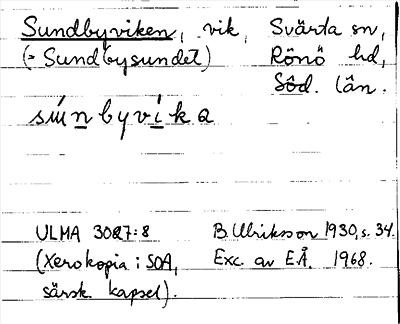 Sundbyviken, vik, Svärta sn,
(= Sundbysundet) Rönö hd,
Söd. län.
súnbyvíka
ULMA 3027:8 B. Ulriksson 1930, s. 34.
(Xerokopia i SOA, Exc. av E.Å. 1968.
särsk. kapsel).